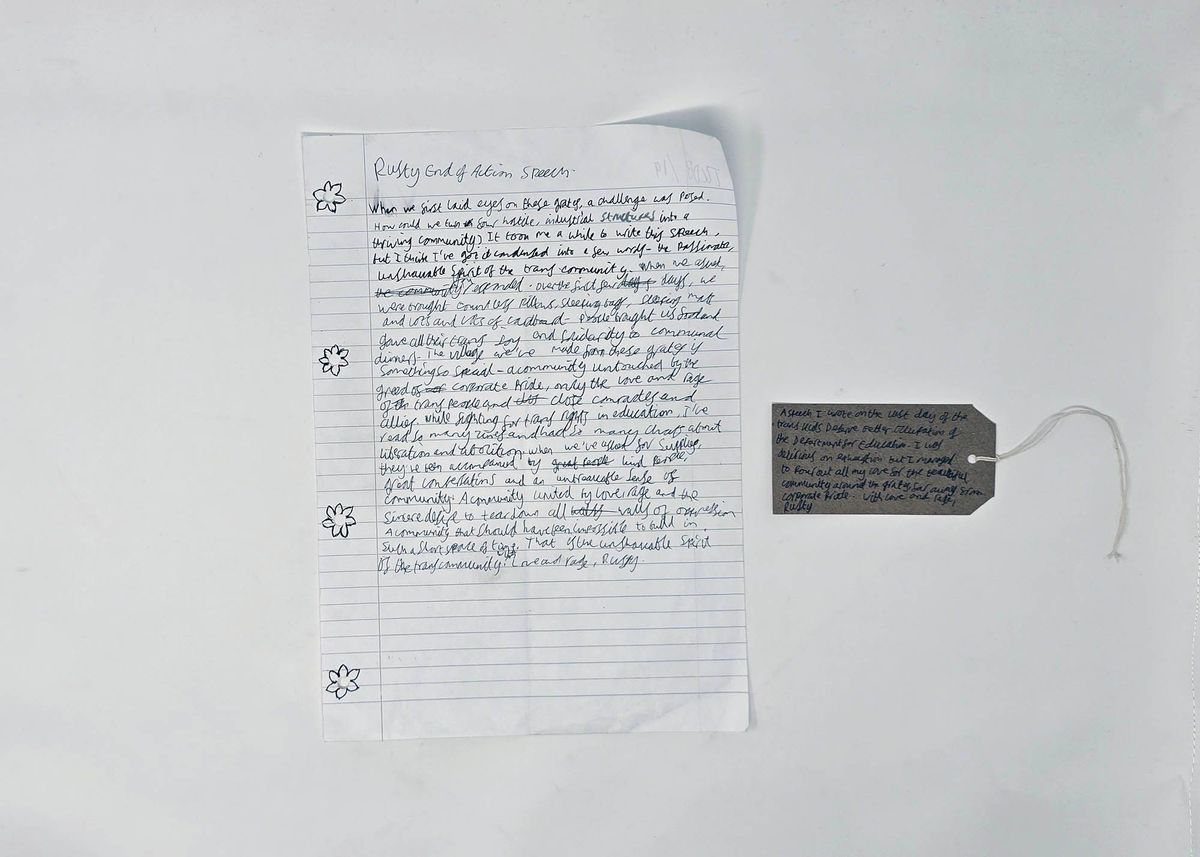 Rusty End of Action Speech.
When we first laid eyes on these grates, a challenge was posed.
How could we turn four hostile, industrial structures into a
thriving community? It took me a while to write this speech,
but I think I've got it condensed into a few words - the passionate,
unshakable spirit of the trans community. When we asked,
the community responded. Over the first few days, we
were brought countless pillows, sleeping bags, sleeping mats
and lots and lots of cardboard - People brought us food and
gave all their trans joy and solidarity to communal
dinners. The village we've made from these grates is
something so special - a community untouched by the
greed of corporate Pride, only the love and rage
of trans people and close comrades and
allies while fighting for trans rights in education. I've
read so many zines and had so many chats about
liberation and abolition. When we've asked for supplies,
they've been accompanied by kind people,
great conversations and an unbreakable sense of
community. A community united by love, rage and the
sincere desire to tear down all walls of oppression
A community that should have been impossible to build in
such a short space of time. That is the unshakable spirit
of the trans community. Love and rage, Rusty.
A speech I wrote on the last day of the
trans kids Deserve Better occupation of
the Department for Education. I was
delirious on exhaustion but I managed
to pour out all my love for the beautiful
community around the grates far away from
corporate Pride. With love and rage,
Rusty